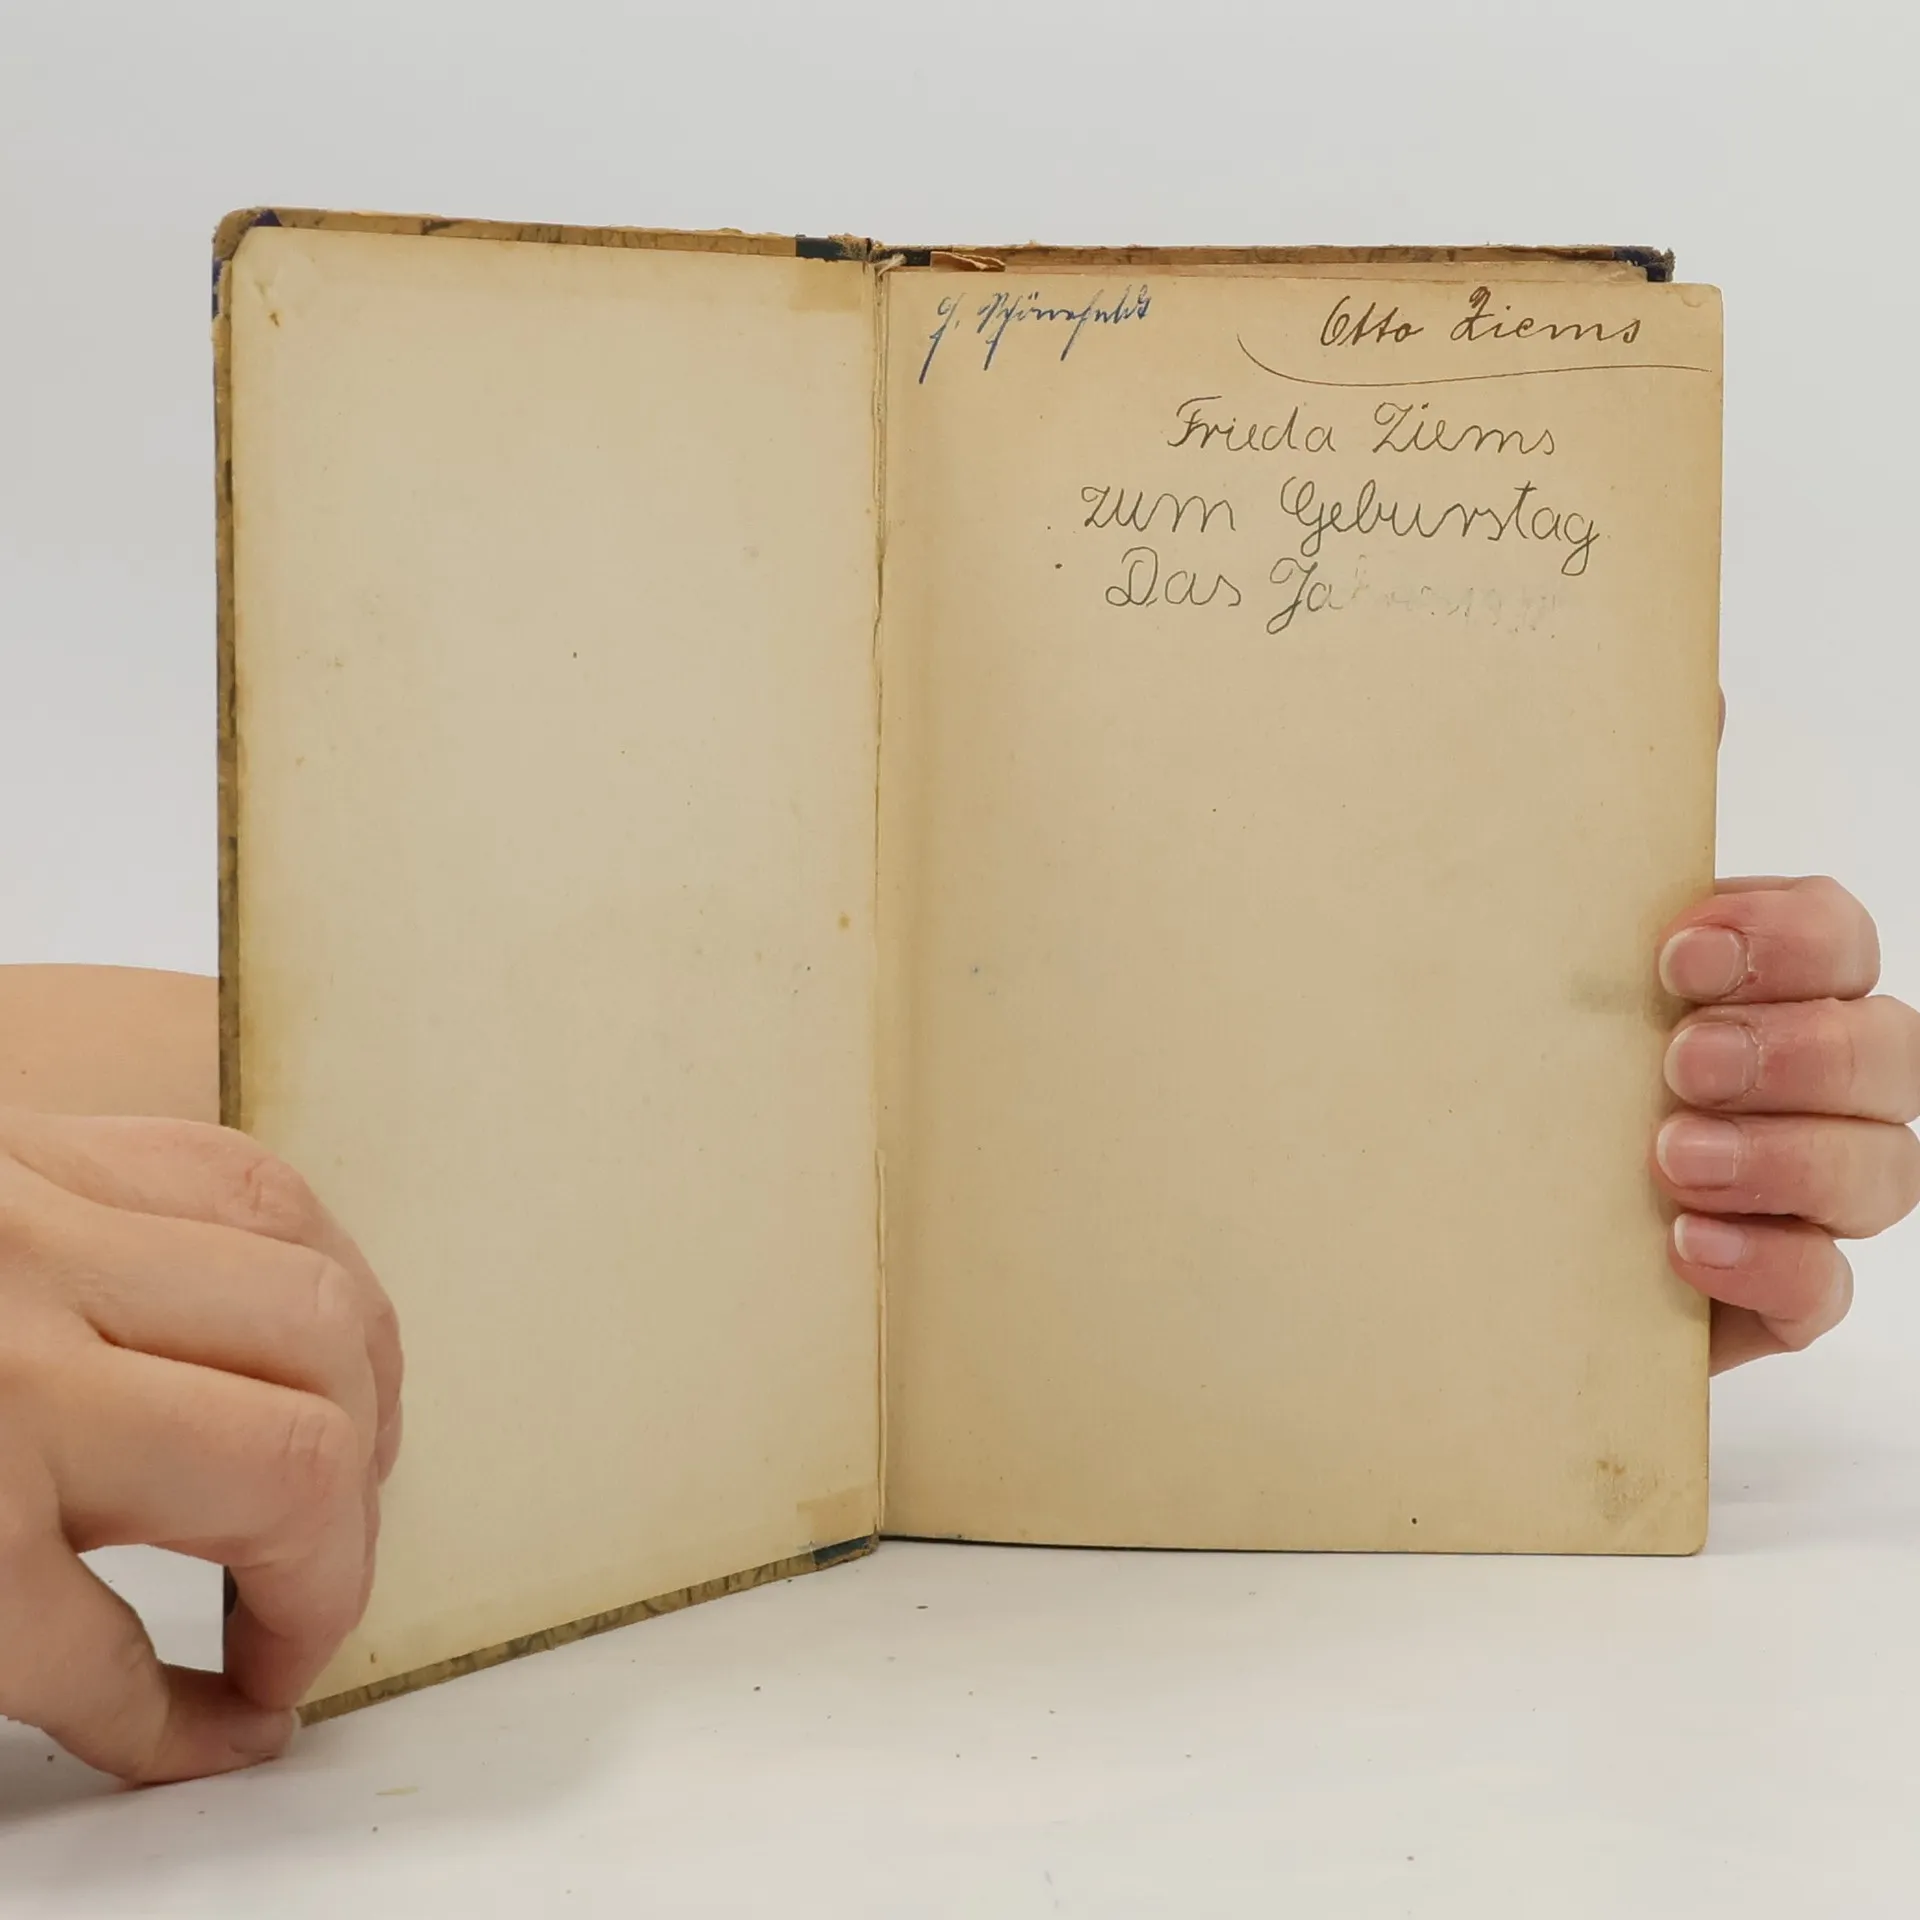 G. Schönefeldt
Otto Ziems
Frieda Ziems
zum Geburstag
Das Ja